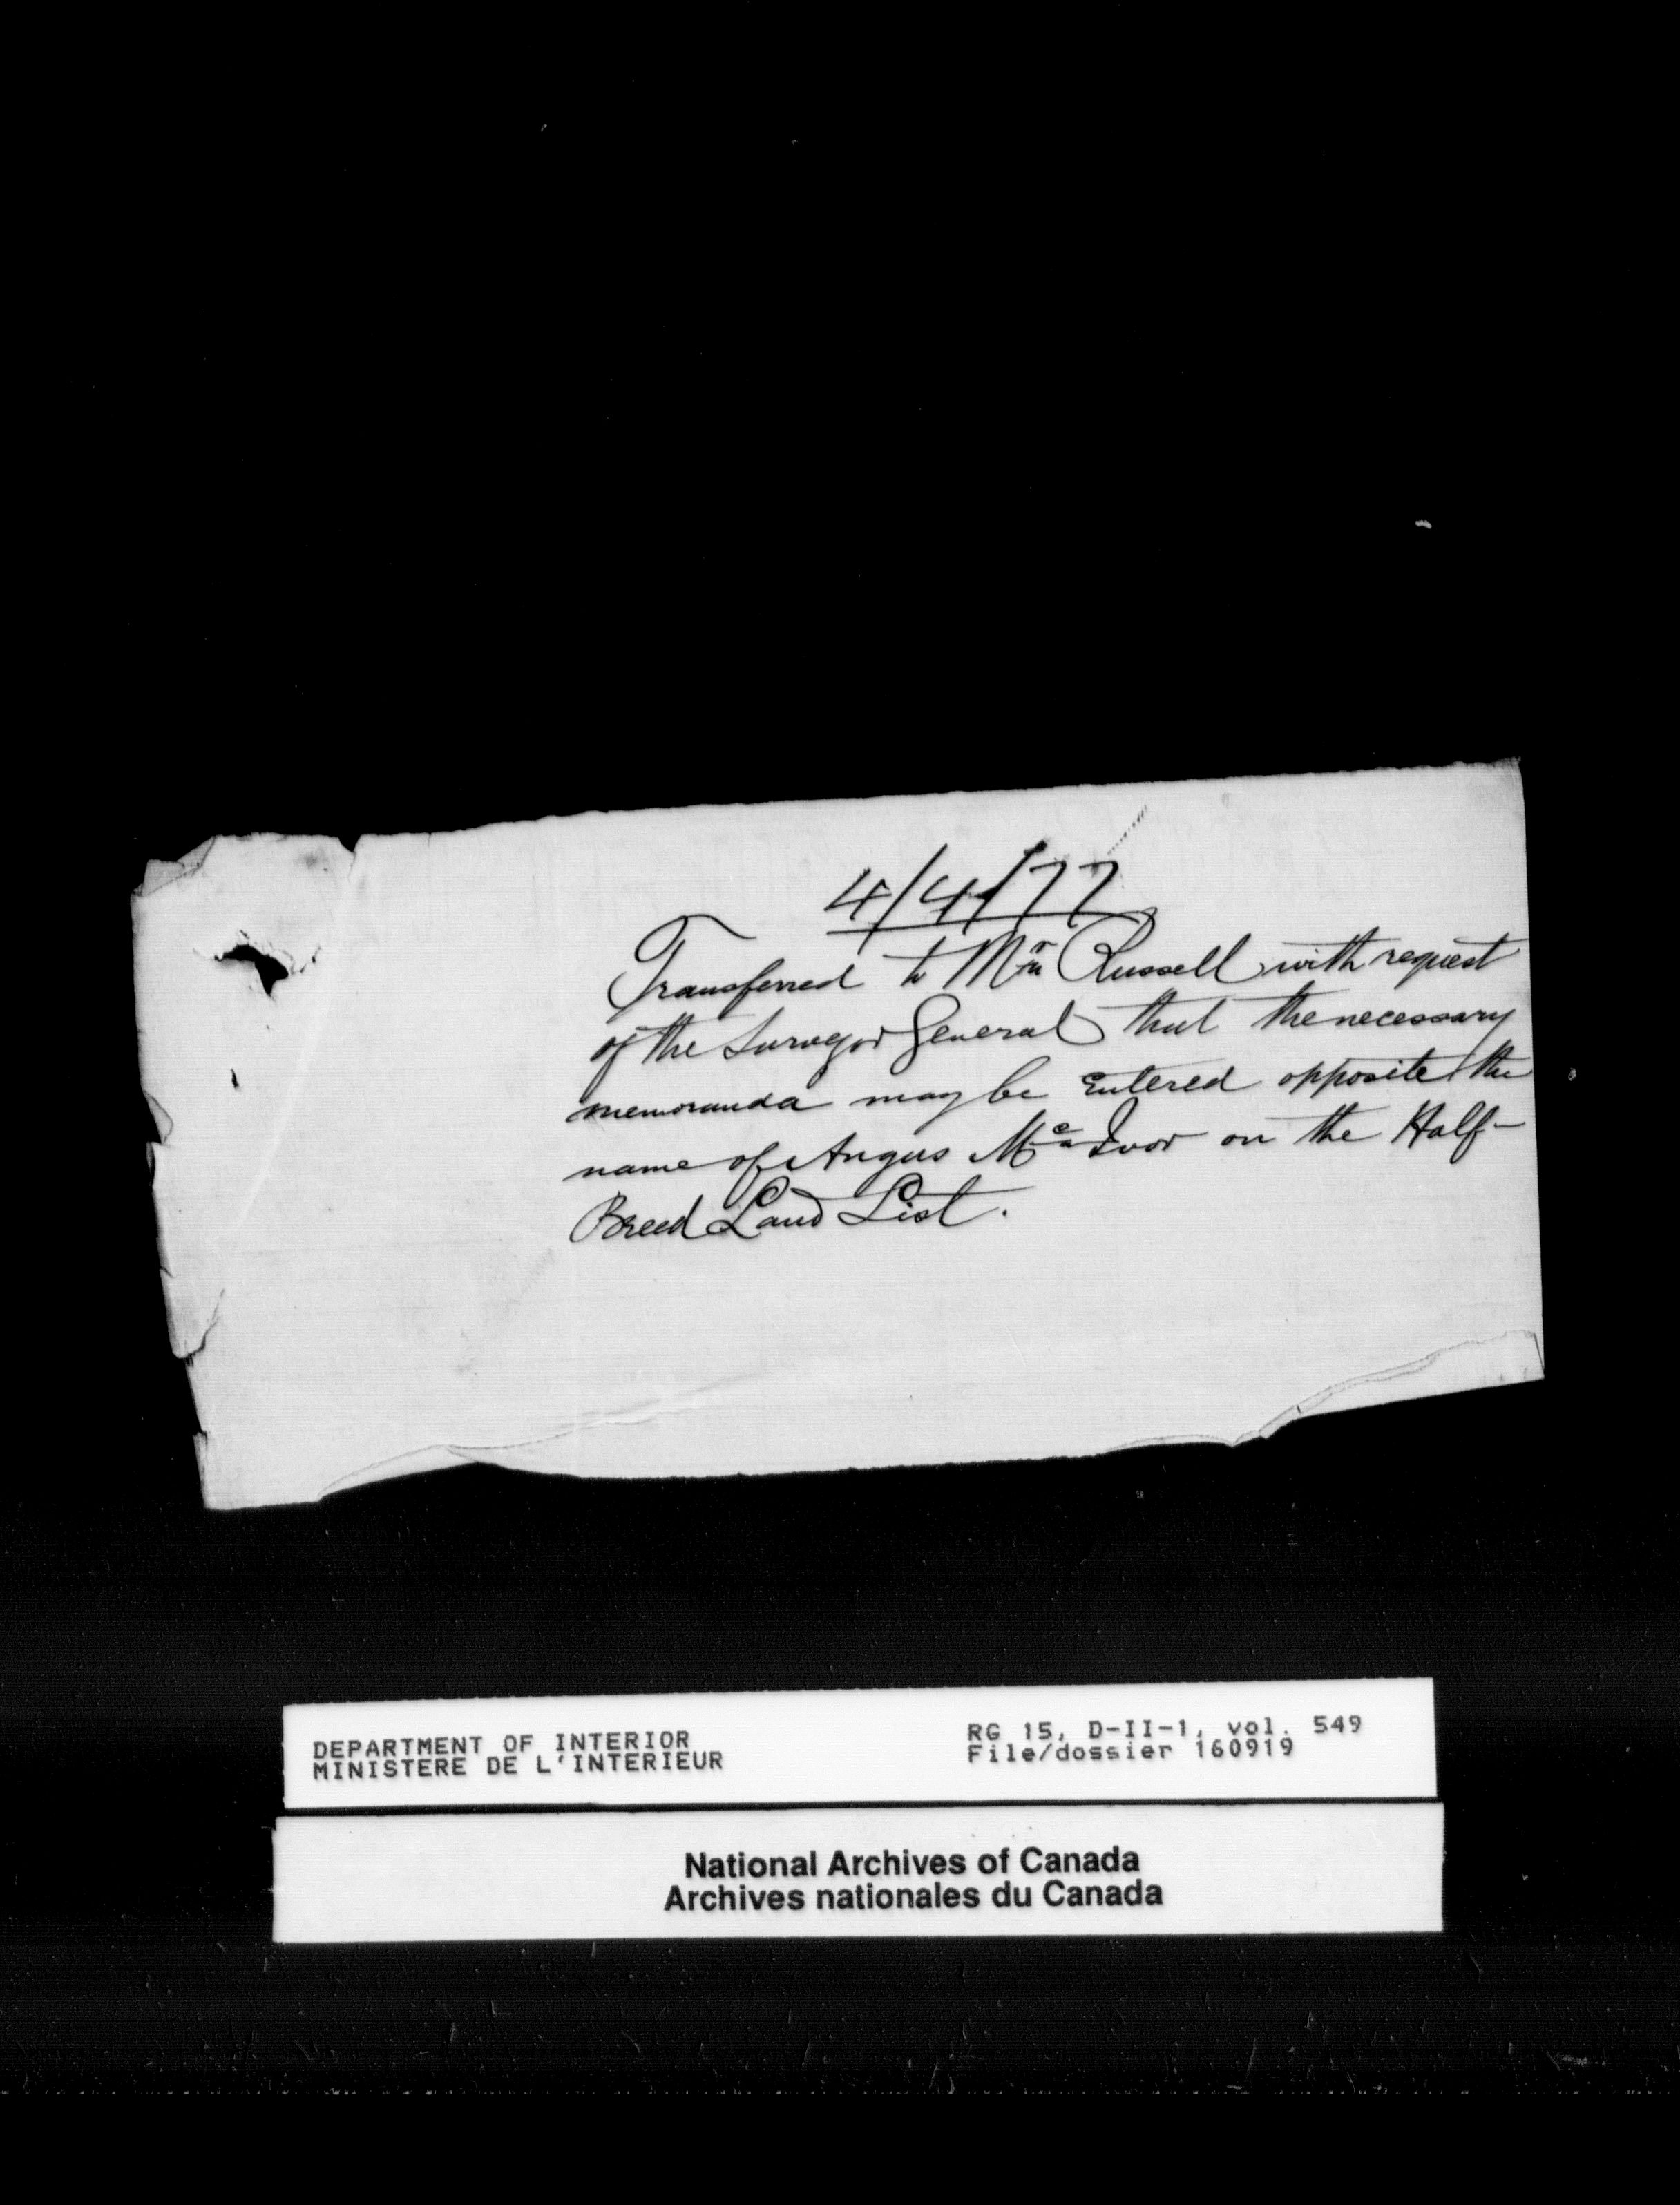 4/4/77
Transferred to Mr Russell with request
of the Surveyor General that the necessary
memoranda may be entered opposite the
name of Angus Mc Ivor on the Half-
Breed Land List.
DEPARTMENT OF INTERIOR
MINISTERE DE L'INTERIEUR
RG 15, D-II-1, vol. 549
File/dossier 160919
National Archives of Canada
Archives nationales du Canada